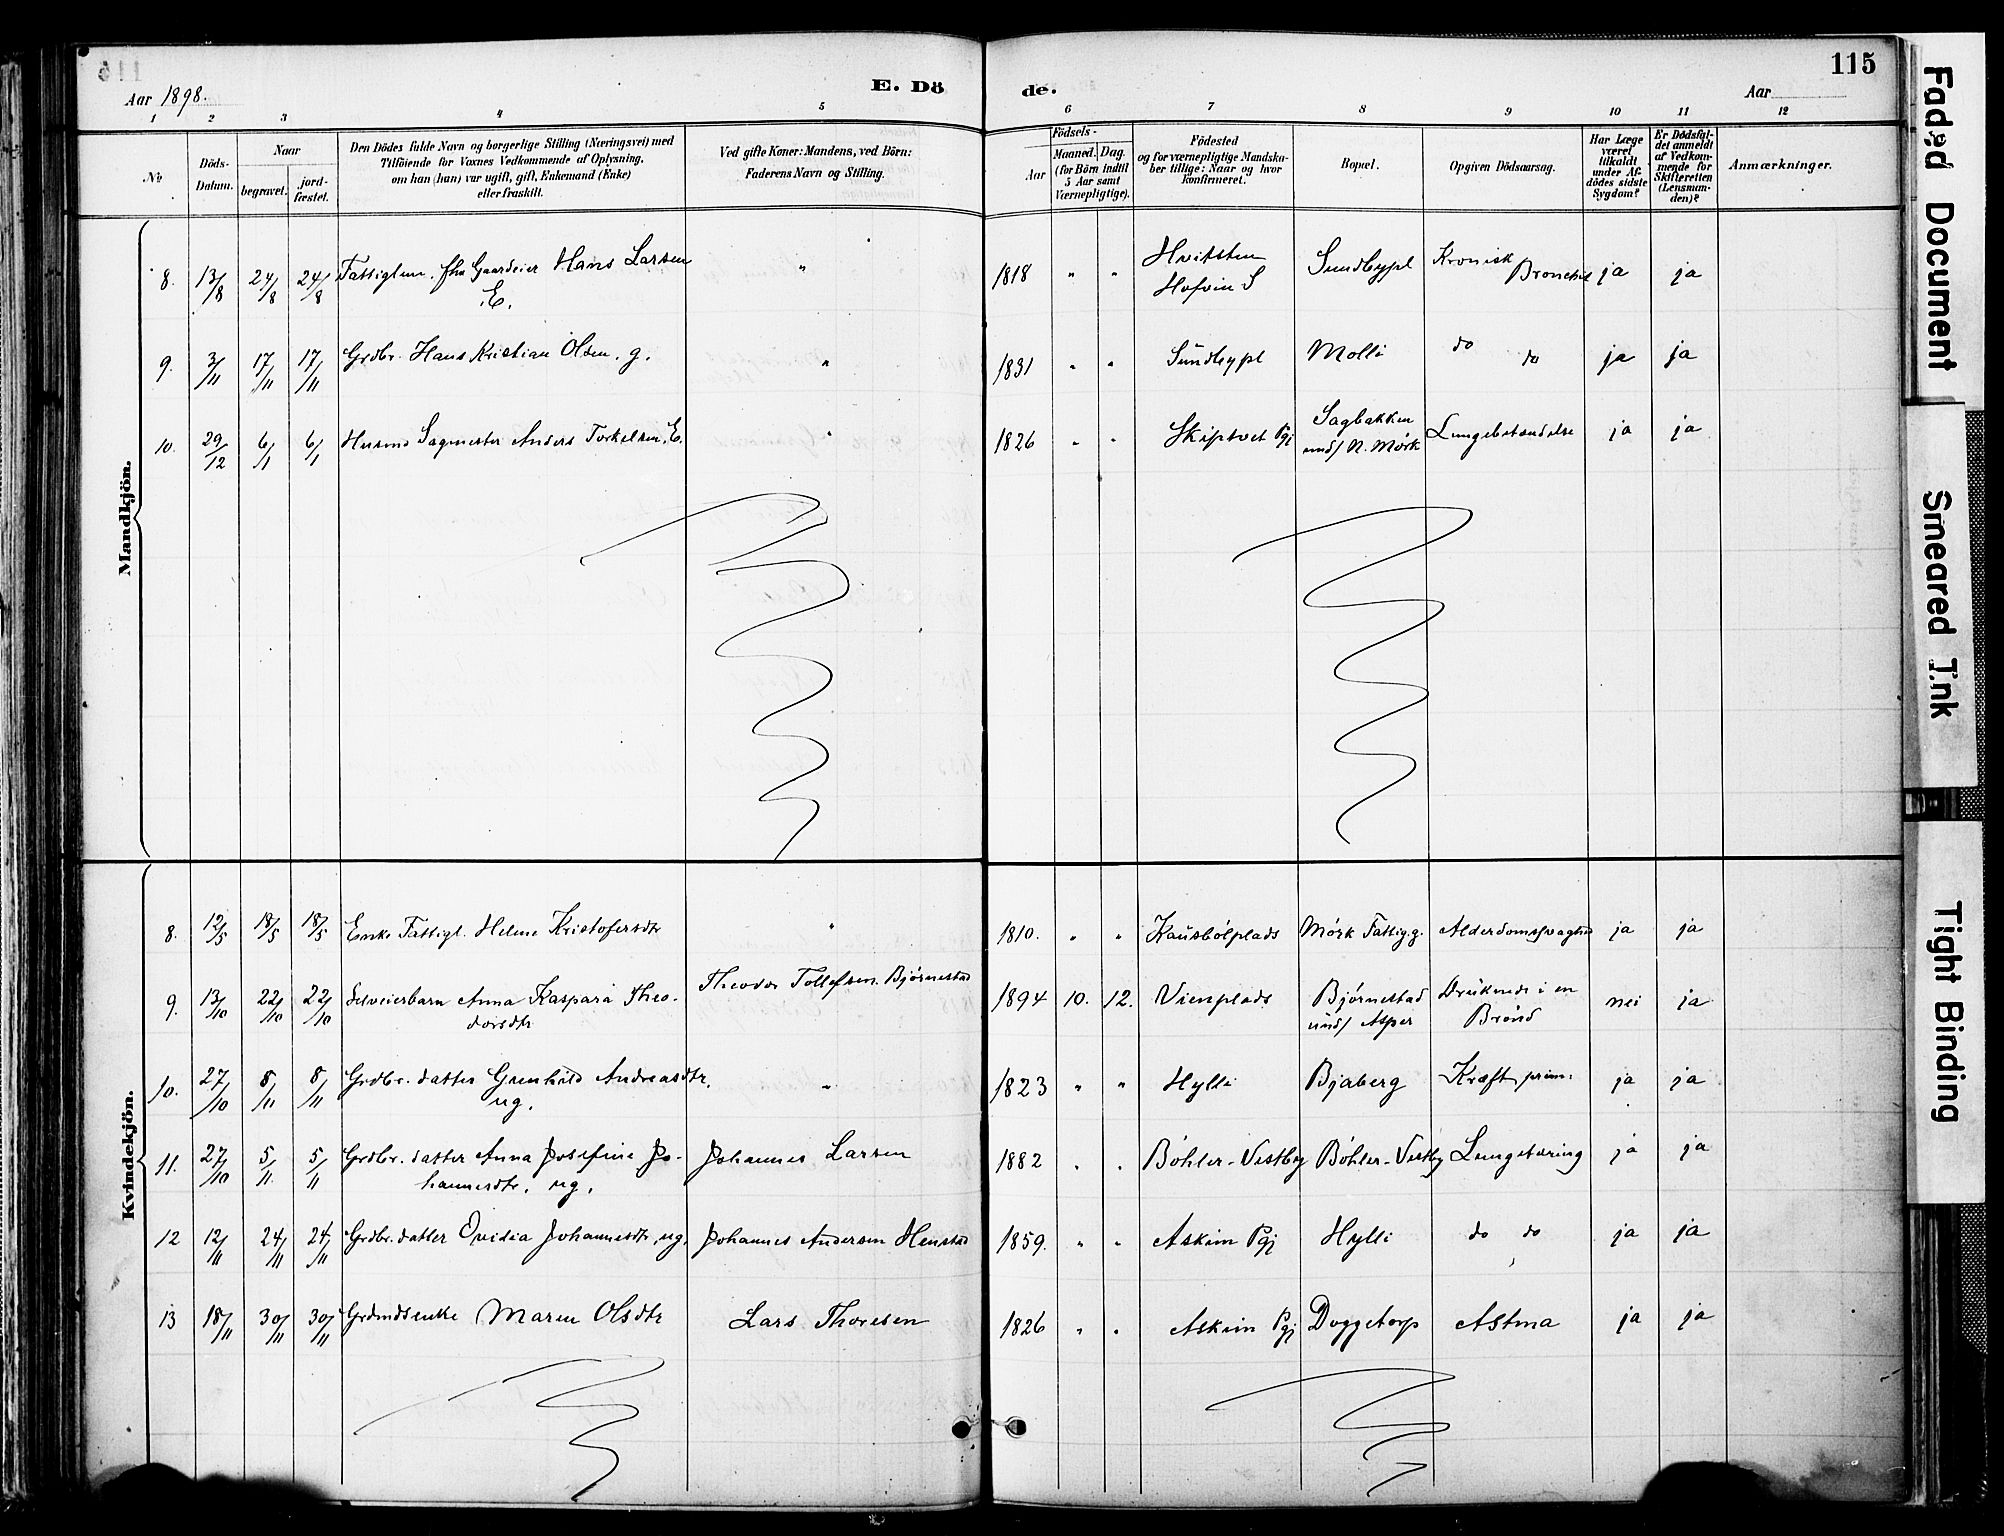 115
Aar 1898.
E. Döde.
Aar
1 2 3 4 5 6 7 8 9 10 11 12
No
Döds-Datum.
Naar
begravet.
jord-fæstet.
Den Dödes fulde Navn og borgerlige Stilling (Næringsvei) med
Tilföiende for Voxnes Vedkommende af Oplysning,
om han (hun) var ugift, gift, Enkemand (Enke)
eller fraskilt.
Ved gifte Koner: Mandens, ved Börn:
Faderens Navn og Stilling.
Födsels-
Aar
Maaned. Dag.
(for Börn indtil
5 Aar samt
Værnepligtige).
Födested
og for værnepligtige Mandska-
ber tillige: Naar og hvor
konfirmeret.
Bopæl.
Opgiven Dödsaarsag.
Har Læge
været
tilkaldt
under Af-
dödes sidste
Sygdom?
Er Dödsfal-
det anmeldt
af Vedkom-
mende for
Skifteretten
(Lensman-
den)?
Anmærkninger.
Mandkjön.
8. 13/8 24/8 24/8 Fattiglem. fhv Gaardeier Hans Larsen E. " 1818 " " Hvitsten Hofvin S Sundbypl Kronisk Bronchit ja ja
9. 3/11 17/11 17/11 Grdbr. Hans Kristian Olsen. g. " 1831 " " Sundbypl Molli do do ja ja
10. 29/12 6/1 6/1 Husmd Sagmester Anders Torkelsen. E. " 1826 " " Skiptvet Pgj Sagbakken und/ N. Mørk Lungebetændelse ja ja
Kvindekjön.
8. 12/5 18/5 18/5 Enke Fattigl. Helene Kristofersdtr " 1810. " " Kausbölplads Mörk Fattigg. Alderdomssvaghed ja ja
9. 13/10 22/10 22/10 Selveierbarn Anna Kaspara Theo-dorsdtr Theodor Tollefsen. Bjørnestad 1894 10. 12. Vienplads Bjørnestad und/ Asper Druknede i en Brönd nei ja
10. 27/10 8/11 8/11 Grdbr. datter Gunhild Andreasdtr. ug. " 1823 " " Hylli Bjaberg Kræft prim. ja ja
11. 27/10 5/11 5/11 Grdbr. datter Anna Josefine Jo-hannesdtr. ug. Johannes Larsen 1882 " " Böhler-Vestby Böhler-Vestby Lungetæring ja ja
12 12/11 24/11 24/11 Grdbr. datter Ovidia Johannesdtr, ug. Johannes Andersen Henstad 1859. " " Askim Pgj Hylli do do ja ja
13 18/11 30/11 30/11 Grdmdsenke Maren Olsdtr Lars Thoresen 1826 " " Askim Pgj Doggetorp Astma ja ja
Faded Document
Smeared Ink
Tight Binding